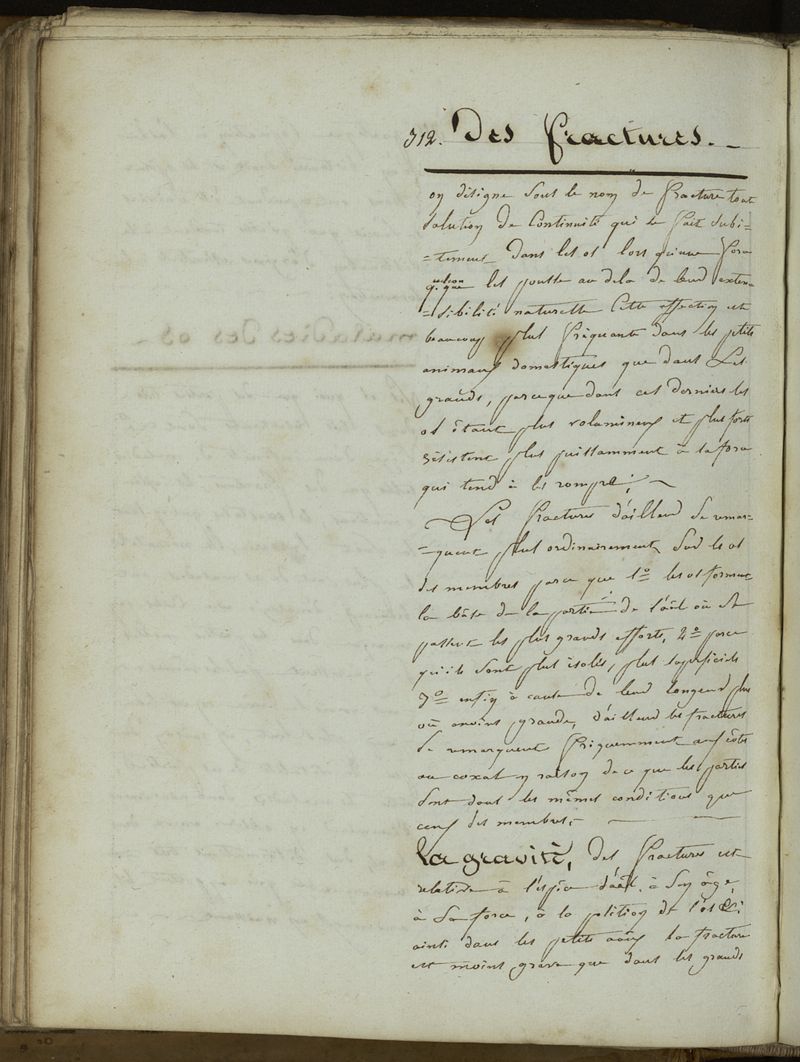 312. Des fractures. -
on désigne sous le nom de fracture tout
solution de Continuité qui se fait Subi=
=tement dans les os lors qu'une force
q.que les pousse au dela de leur exten=
=sibilité naturelle Cette affection est
beaucoup plus fréquente dans les petits
animaux domestiques que dans Les
grands, parceque dans ces derniers les
os étant plus volumineux et plus forts
résistent plus puissamment à la force
qui tend à les rompre;
Les fractures d'ailleur se remar=
=quent plus ordinairement Sur les os
des membres parce que 1o les os forment
la bâse de la partie de l'aâl où se
passent les plus grands efforts, 2o parce
qu'ils Sont plus isolés, plus superficiels
3o enfin à cause de leur longeur plus
où moins grande, d'ailleur les fractures
Se remarquent fréquemment aux côtes
au coxal en raison de ce que les parties
Sont dans les mêmes conditions que
ceux des membres.
La gravité, des fractures est
relative à l'espèce d'aâl, à Son âge,
à Sa force, à la position de l'os &c:
ainsi dans les petits aâux la fracture
est moins grave que dans les grands
maladies des os